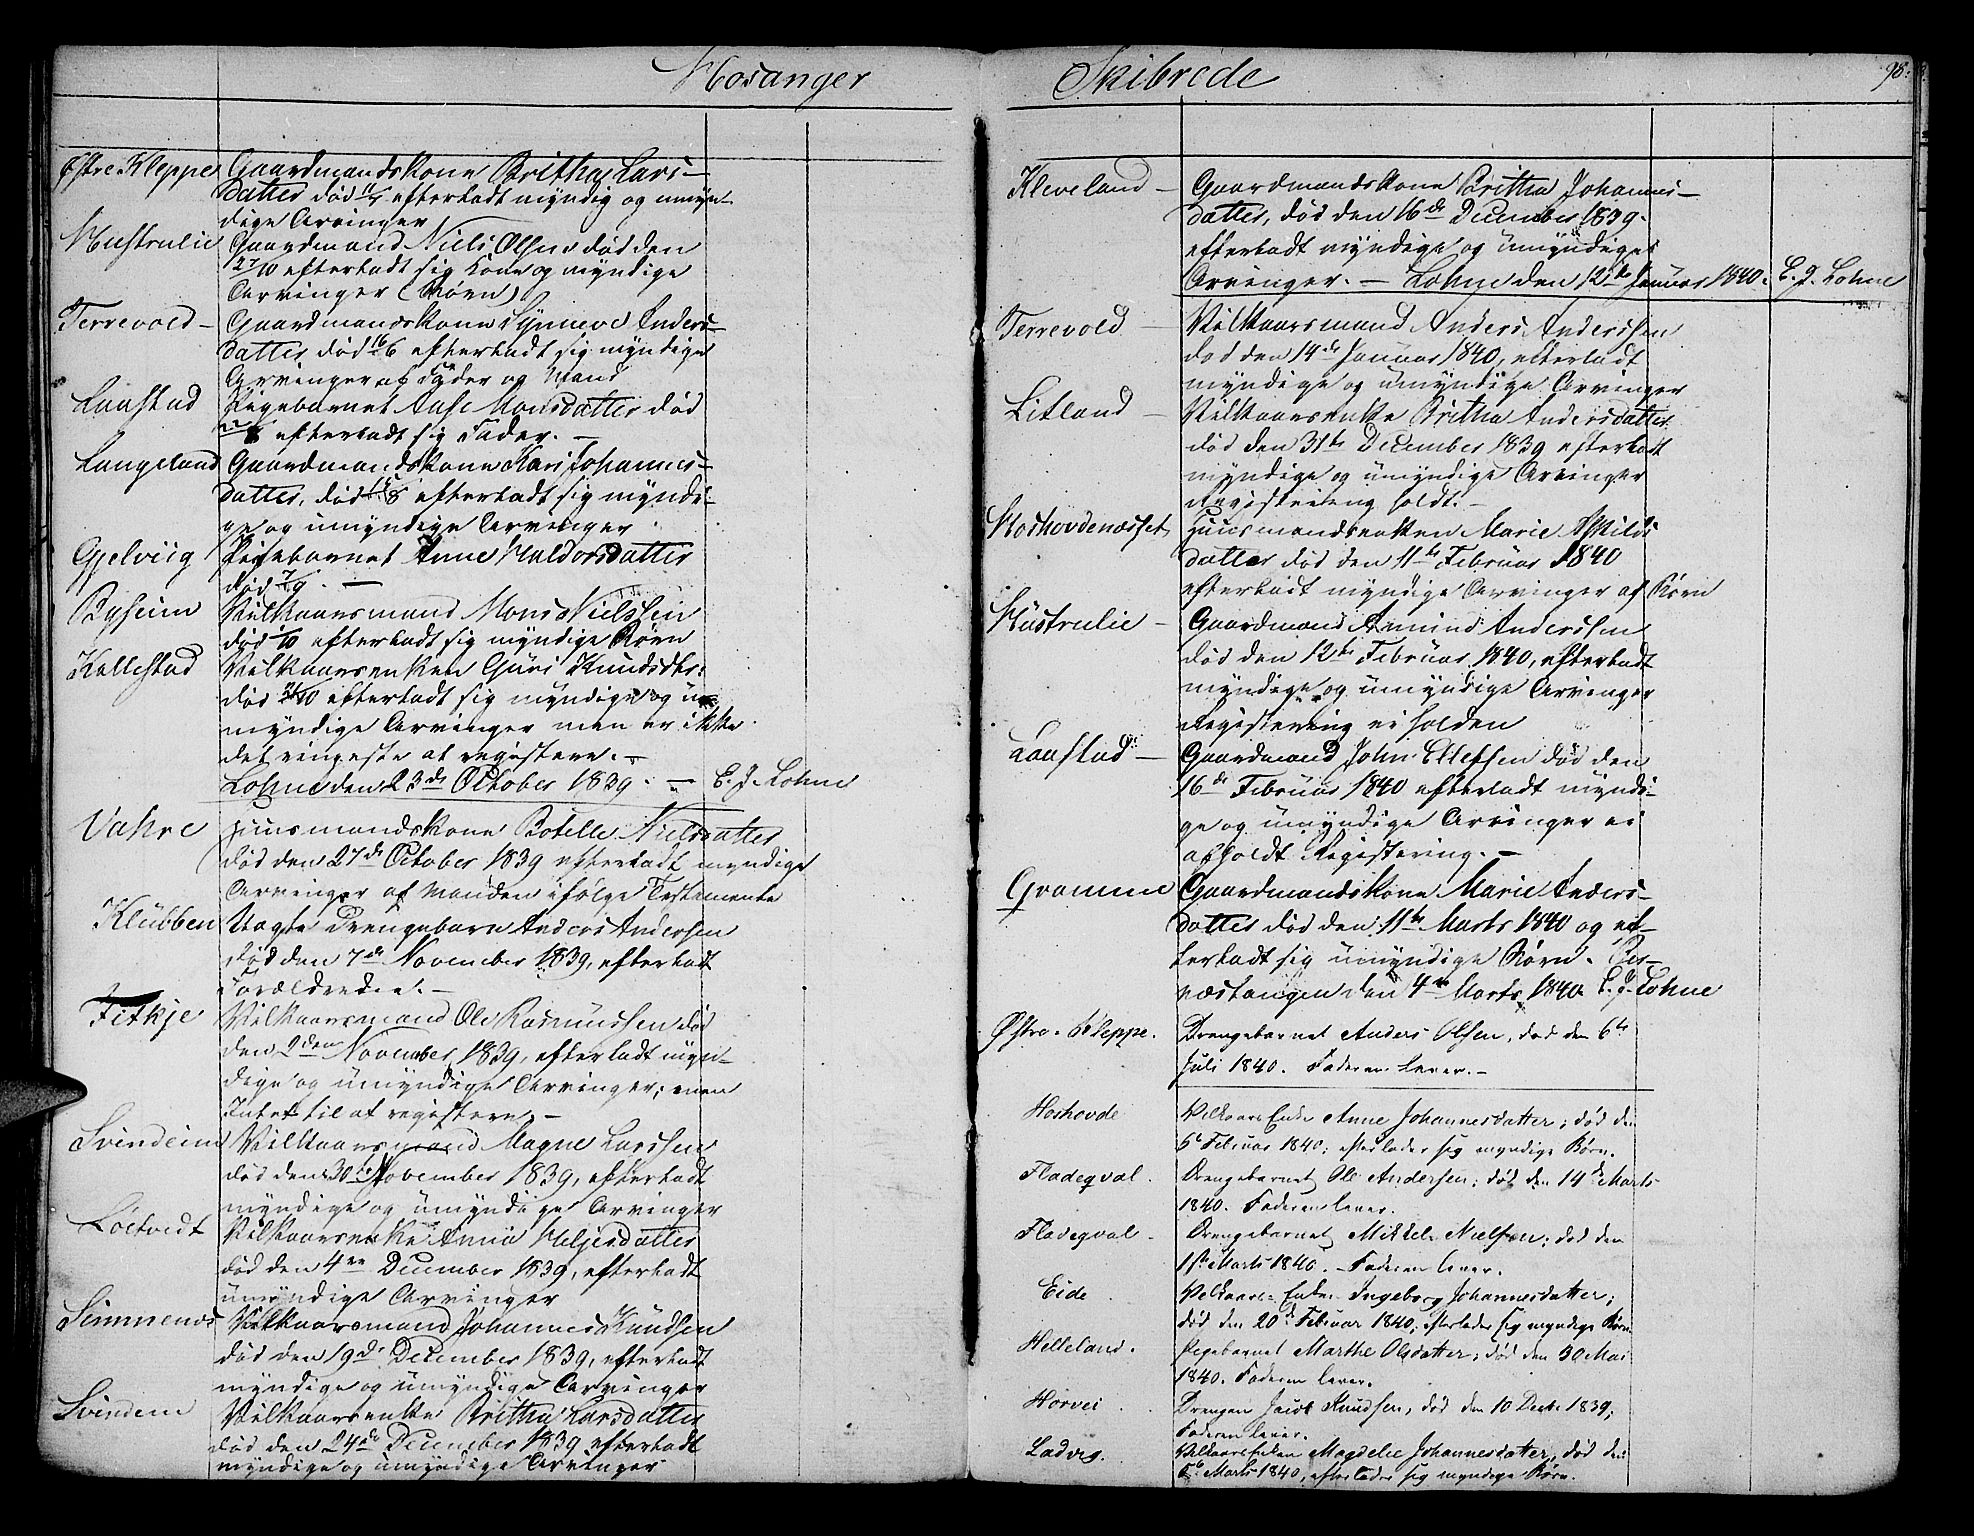 Hosanger
Østre Kleppe Gaardmandskone Britha Lars-
datter død 11/5 efterladt myndig og umyn-
dige Arvinger
Hustrulie Gaardmand Niels Olsen død den
27/10 efterladt sig Kone og myndige
Arvinger (Børn)
Terrevold - Gaardmandskone Synneve Anders-
datter, død 16/6 efterladt sig myndige
Arvinger af Fader og Mand
Laastad Pigebarnet Anse Monsdatter død
efterladt sig Fader. -
Langeland Gaardmandskone Kari Johannes-
datter, død efterladt sig myndi-
ge og umyndige Arvinger
Gjelviig Pigebarnet Anne Haldorsdatter
død 7/9. -
Bysheim Vilkaarsmand Mons Nielssen
død /10 efterladt sig myndige Børn
Kallestad Vilkaarsenken Guri Knudsdtr:
død 21/10 efterladt sig myndige og u-
myndige Arvinger men er ikke
det ringeste at registere. -
Lohne den 23de October 1839. - E. J. Lohne
Vahre Huusmandskone Botelle Nielsdatter
død den 27de October 1839 efterladt myndige
Arvinger af Manden ifølge Testamente
Klubben Uægte Drengebarn Anders Andersen
død den 7de November 1839, efterladt
Forældrene. -
Fitkje Vilkaarsmand Ole Rasmussen død
den 9den November 1839, efterladt myn-
dige og umyndige Arvinger; men
Intet til at registere. -
Svindeim Vilkaarsmand Magne Larssen
død den 30te November 1839, efterladt
myndige og umyndige Arvinger
Løtvedt Vilkaarsenke Anna Heljesdatter
død den 4de December 1839, efterladt
umyndige Arvinger
Simmenæs Vilkaarsmand Johannes Knudsen
død den 19de December 1839, efterladt
myndige og umyndige Arvinger
Svindem Vilkaarsenke Britha Larsdatter
død den 24de December 1839 efterladt
myndige og umyndige Arvinger
Skibrede 98.
Kleveland - Gaardmandskone Britha Johannes-
datter, død den 16de December 1839.
efterladt myndige og umyndige
Arvinger. - Lohne den 12te Januar 1840. E. J. Lohne
Terrevold - Vilkaarsmand Anders Anderssen
død den 14de Januar 1840, efterladt
myndige og umyndige Arvinger
Litland - Vilkaarsenke Britha Andersdatter
død den 31te December 1839 efterladt
myndige og umyndige Arvinger
Registrering holdt. -
Hoshovdenæsset Huusmandsenken Marie
datter død den 11te Februar 1840
efterladt myndige Arvinger af Børn
Hustrulie - Gaardmand Amund Anderssen
død den 12te Februar 1840, efterladt
myndige og umyndige Arvinger
Registering ei holden
Laastad - Gaardmand John Ellefsen død den
16de Februar 1840 efterladt myndi-
ge og umyndige Arvinger ei
afholdt Registering. -
Gramme Gaardmandskone Marie Anders-
datter død den 11te Marts 1840 og ef-
terladt sig umyndige Børn.
den 4de Marts 1840. E. J. Lohne
Østre Kleppe. Drengebarnet Anders Olsen, død den 6te
Juli 1840. Faderen lever. -
Hoshovde Vilkaars Enke Anne Johannesdatter; død den
6te Februar 1840; efterlader sig myndige Børn.
Fladeqval. Drengebarnet Ole Andersen; død den 14de Marts
1840. Faderen lever.
Fladeqval. Drengebarnet Mikkel Nielsen; død den
1ste Marts 1840. - Faderen lever.
Eide. Vilkaars Enke Ingeborg Johannesdatter;
død den 20de Februar 1840; efterlader sig myndige Børn.
Helleland. Pigebarnet Marthe Olsdatter; død den 30 Mai
1840. Faderen lever.
Horvei. Drengen Jacob Knudsen, død den 10 Decbr 1839;
Faderen lever.
Ladvig. Vilkaars Enken Magdele Johannesdatter, død den
Marts 1840, efterlader sig myndige Børn.